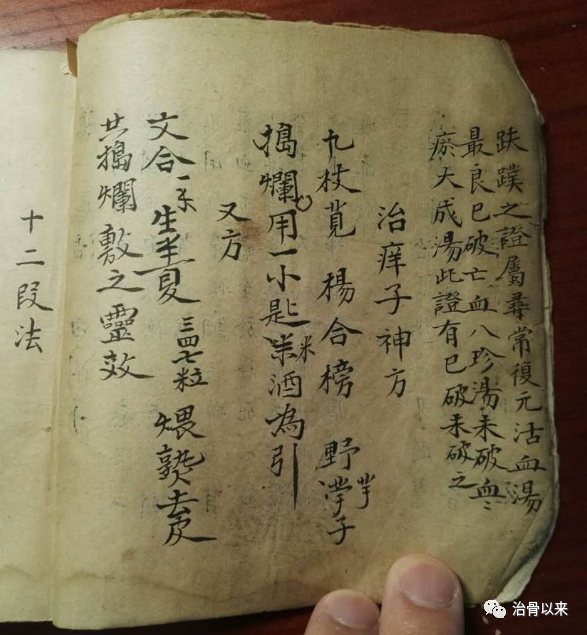 跌蹼之證屬尋常復元活血湯
最良巳破亡血八珍湯未破血〻
瘀大成湯此證有巳破未破之
治痒子神方
九杖莧 楊合榜 野芋子
搗爛用一小匙米酒為引
又方
文合 生半夏 三四七粒 煨熟去皮
共搗爛敷之靈效
十二段法
治骨以来